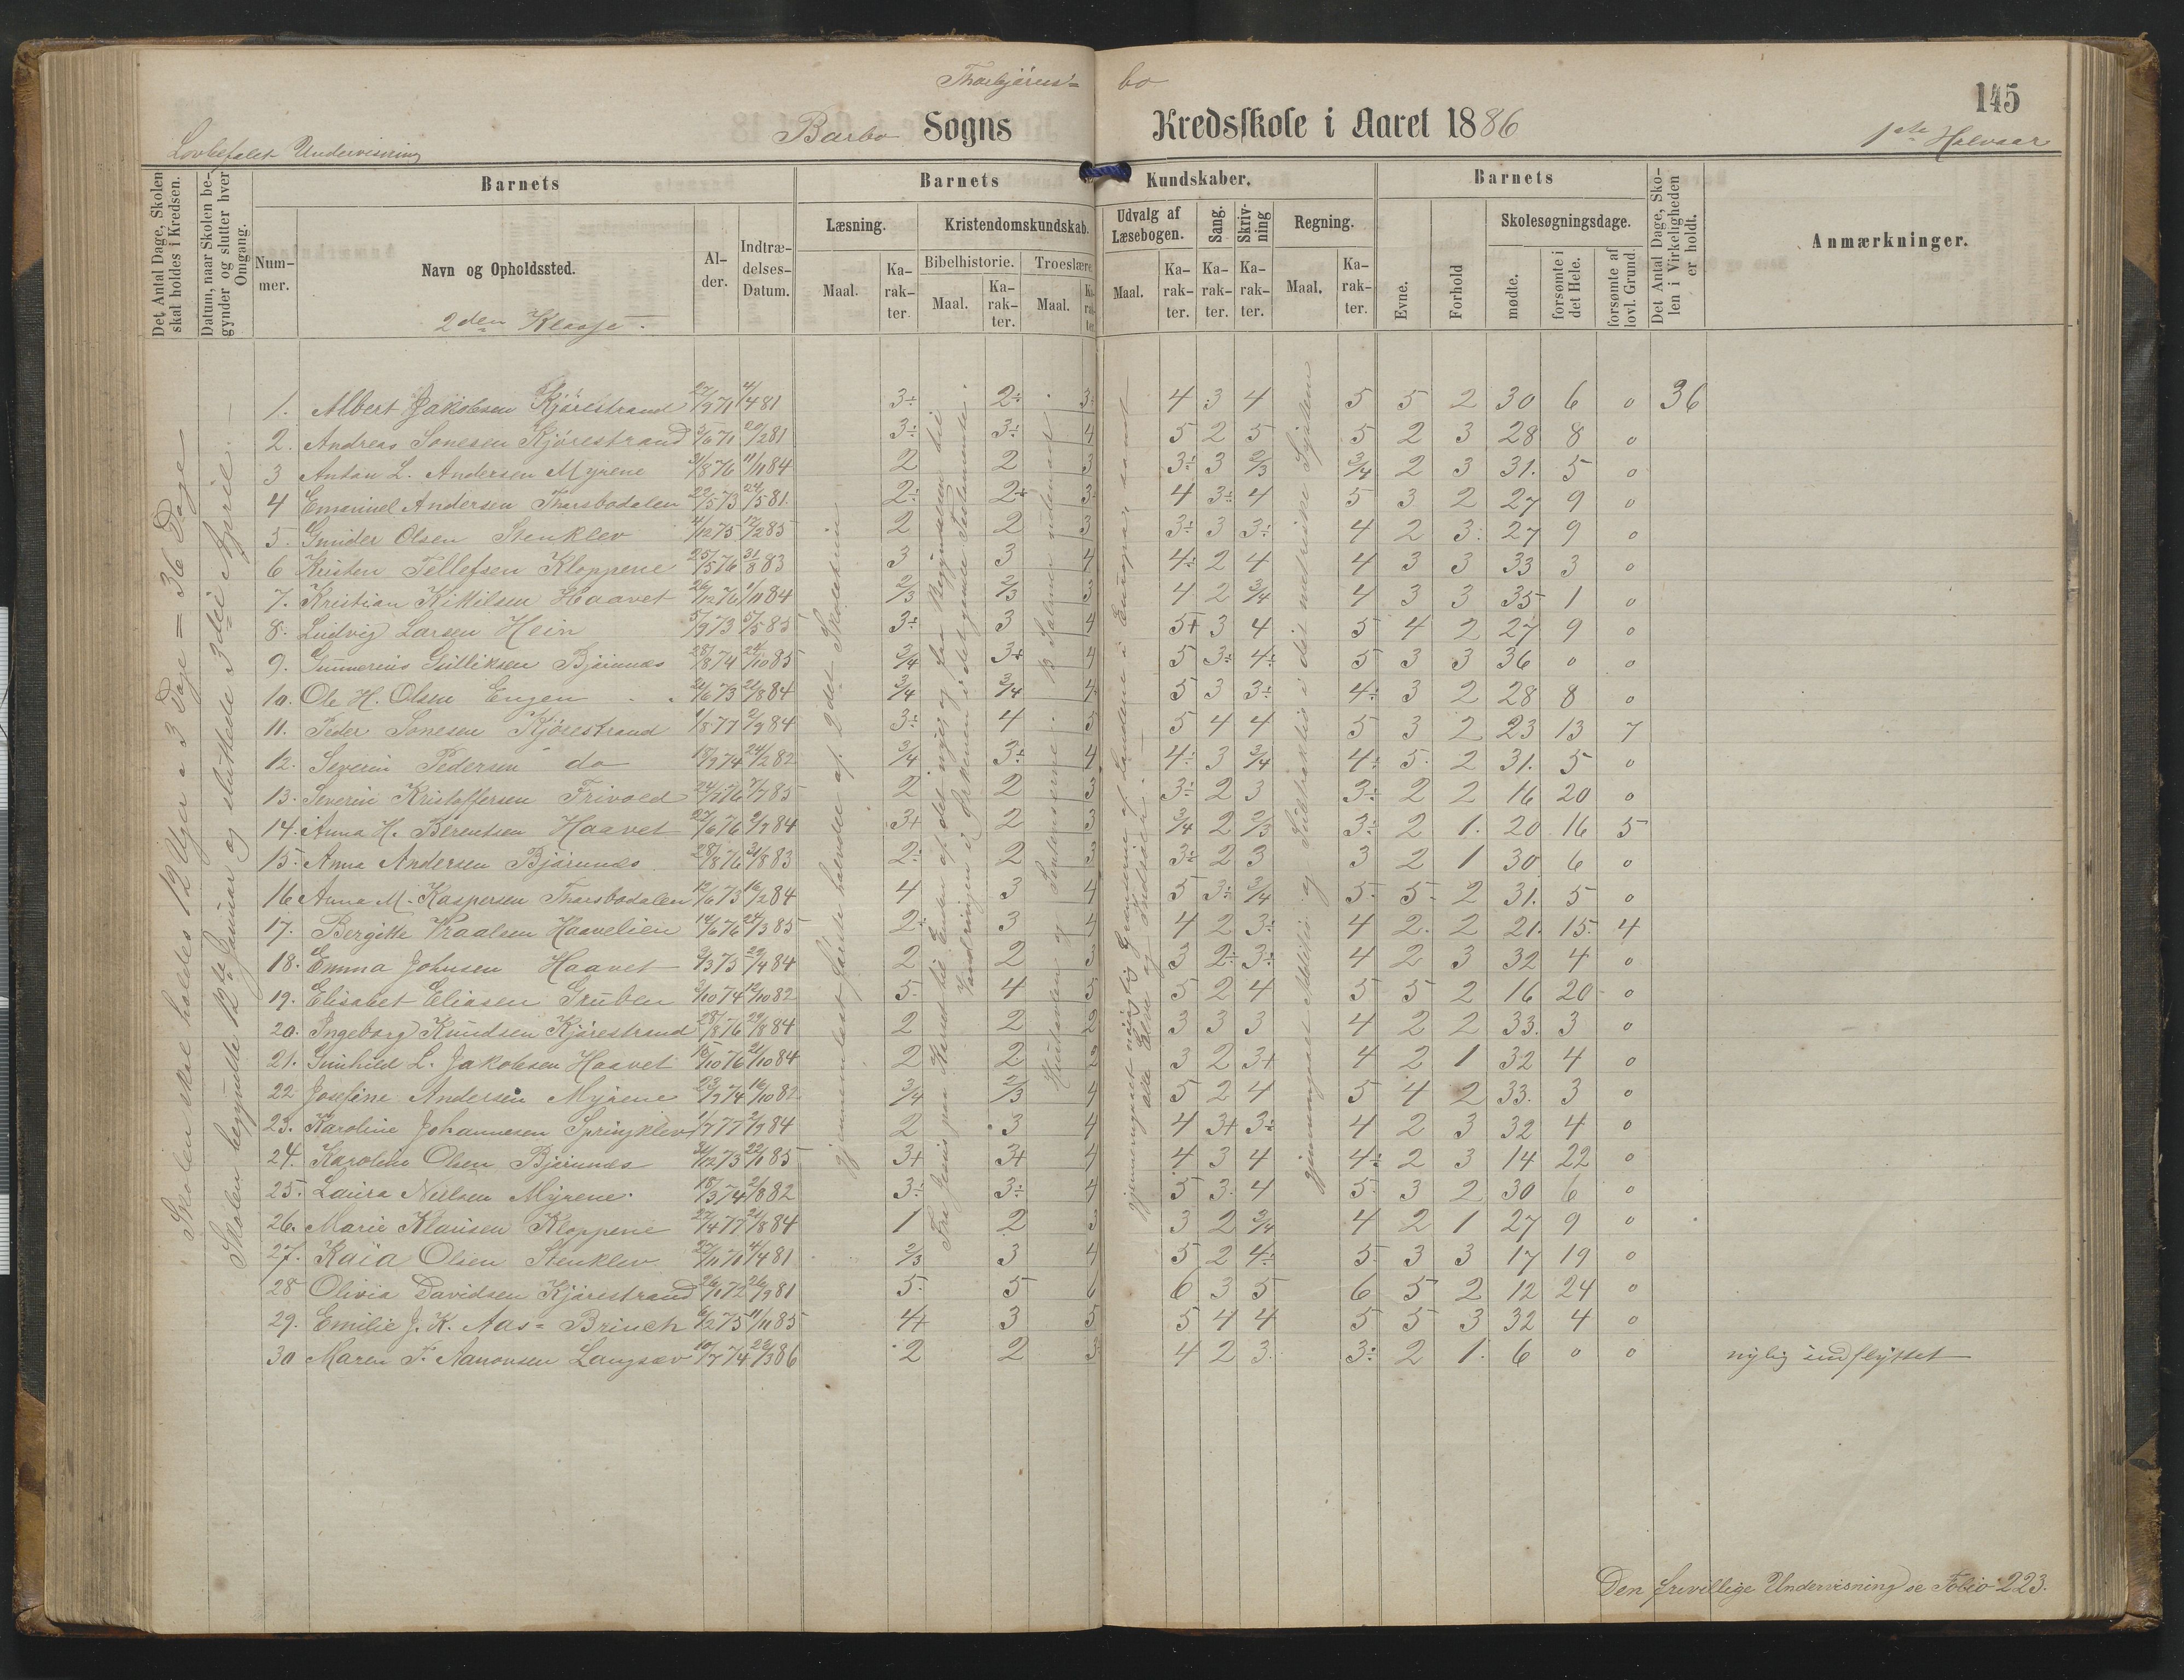 Thorbjörns= bo
145
Lovbefalet Undervisning
Barbo Sogns Kredsskole i Aaret 1886
1ste Halvaar
Det Antal Dage, Skolen skal holdes i Kredsen.
Datum, naar Skolen begynder og slutter hver Omgang.
Barnets
Barnets Kundskaber.
Barnets
Det Antal Dage, Skolen i Virkeligheden er holdt.
Anmærkninger.
Nummer.
Navn og Opholdssted.
Alder.
Indtrædelses-Datum.
Læsning.
Kristendomskundskab.
Udvalg af Læsebogen.
Sang.
Skrivning
Regning.
Evne.
Forhold
Skolesøgningsdage.
Bibelhistorie.
Troeslære.
Maal.
Karakter.
Maal.
Karakter.
Maal.
Karakter.
Maal.
Karakter.
Karakter.
Karakter.
Maal.
Karakter.
mødte.
forsømte i det Hele.
forsømte af lovl. Grund.
2den Klasse.
Skolen skal holdes 12 Uger a 3 Dage = 36 Dage
Skolen begyndte 12te Januar og sluttede 3die April.
gjennemlæst første halvdel af 2det Skoletrin
Hustavlen og 13 Salmer udenad.
gjennemgaaet Addition og Subtraktion i det metriske System
1. Albert Jakobsen Kjörestrand 27/9 71 4/4 81 3÷ 2÷ 3÷ 4 3 4 5 5 2 30 6 0 36
2. Andreas Tonesen Kjörestrand 3/6 71 20/2 81 3÷ 3÷ 4 5 2 5 5 2 3 28 8 0
3 Anton L. Andersen Myrene 31/8 76 11/11 84 2 2 3 3÷ 3 2/3 3/4 2 3 31. 5 0
4 Emanuel Andersen Thorsbodalen 22/5 73 24/5 81 2÷ 2÷ 3÷ 4 3÷ 4 5 3 2 27 9 0
5. Gunder Olsen Stenklev 4/12 75 17/2 85 2 2 3 3÷ 3 3÷ 4 2 3 27 9 0
6 Kristen Tellefsen Kloppene 25/5 76 31/8 83 3 3 4 4÷ 2 4 4 3 3 33 3 0
7. Kristian Kittilsen Haavet 26/12 76 1/11 84 2/3 2/3 3 4 2 3/4 4 3 3 35 1 0
8. Ludvig Larsen Hein 5/9 73 5/5 85 3÷ 3 4 5+ 3 4 5 4 2 27 9 0
9. Gunnerius Gulliksen Bjørnnes 28/8 74 24/10 85 3/4 3+ 4 5 3÷ 4÷ 5 3 3 36 0 0
10. Ole H. Olsen Engen 21/6 73 21/8 84 3/4 3/4 4 5 3 3÷ 4÷ 3 2 28 8 0
11. Peder Tonesen Kjörestrand 1/8 77 2/9 84 3÷ 4 5 5 4 4 5 3 2 23 13 7
12. Severin Pedersen do 18/9 74 24/2 82 3/4 3÷ 4 4÷ 3 3/4 4÷ 5 2 31. 5 0
13. Severin Kristoffersen Frivold 24/7 76 7/7 85 2 2 3 3÷ 2 3 3÷ 2 2 16 20 0
14. Anna H. Berentsen Haavet 27/6 76 2/9 84 3+ 2 3 3/4 2 2/3 3÷ 2 1. 20 16 5
15. Anna Andersen Bjørnnes 28/8 76 31/8 83 2÷ 2 3 3÷ 2 3 3 2 1 30 6 0
16 Anna M. Kaspersen Thorsbodalen 12/6 73 16/2 84 4 3 4 5 3÷ 3/4 5 5 2 31. 5 0
17. Bergitte Vraalsen Haavelien 14/6 76 24/3 85 2÷ 3 4 4 2 3÷ 4 2 2 21. 15 4
18. Emma Johnsen Haavet 9/3 73 29/4 84 2 2 3 3 2÷ 3÷ 4 2 3 32 4 0
19. Elisabet Eliasen Gruben 3/10 74 12/10 82 5 4 5 5 2 4 5 5 2 16 20 0
20. Ingeborg Knudsen Kjörestrand 28/8 76 29/8 84 2 2 2 3 3 3 4 2 2 33. 3 0
21. Gunhild L. Jakobsen Haavet 15/10 76 21/10 84 2 2 2 3 2 3+ 4 2 1 32 4 0
22 Josefine Andersen Myrene 23/9 74 16/10 82 3/4 2/3 4 5 2 4 5 4 2 33. 3 0
23. Karoline Johannesen Springklev 1/7 77 2/9 84 2 3 4 4 3+ 3÷ 4 2 3 32 4 0
24. Karoline Olsen Bjørnnes 31/12 73 22/1 85 3+ 3+ 4 4 3 4 4÷ 2 3 14 22 0
25. Laura Nielsen Myrene 18/3 74 2/8 82 3÷ 3÷ 4 5 3 4 5 3 2 30 6 0
26. Marie Klausen Kloppene 27/4 77 21/8 84 1 2 3 3 2 3/4 4 2 1 27 9 0
27. Kaia Olsen Stenklev 27/11 70 4/4 81 2/3 3 4 5 2 4÷ 5 3 3 17 19 0
28 Olivia Davidsen Kjörestrand 26/1 72 26/9 81 5 5 6 6 3 5 6 5 2 12 24 0
29. Emilie J. K. Aas= Brinch 6/2 75 11/11 85 4+ 3 5 5 4 4 5 5 3 32 4 0
30 Maren T. Aanonsen Langsæv 10/7 74 22/3 86 2 2 3 4 2 3 3÷ 2 1. 6 0 0 nylig indflyttet
Den frivillige Undervisning se Folio 223.